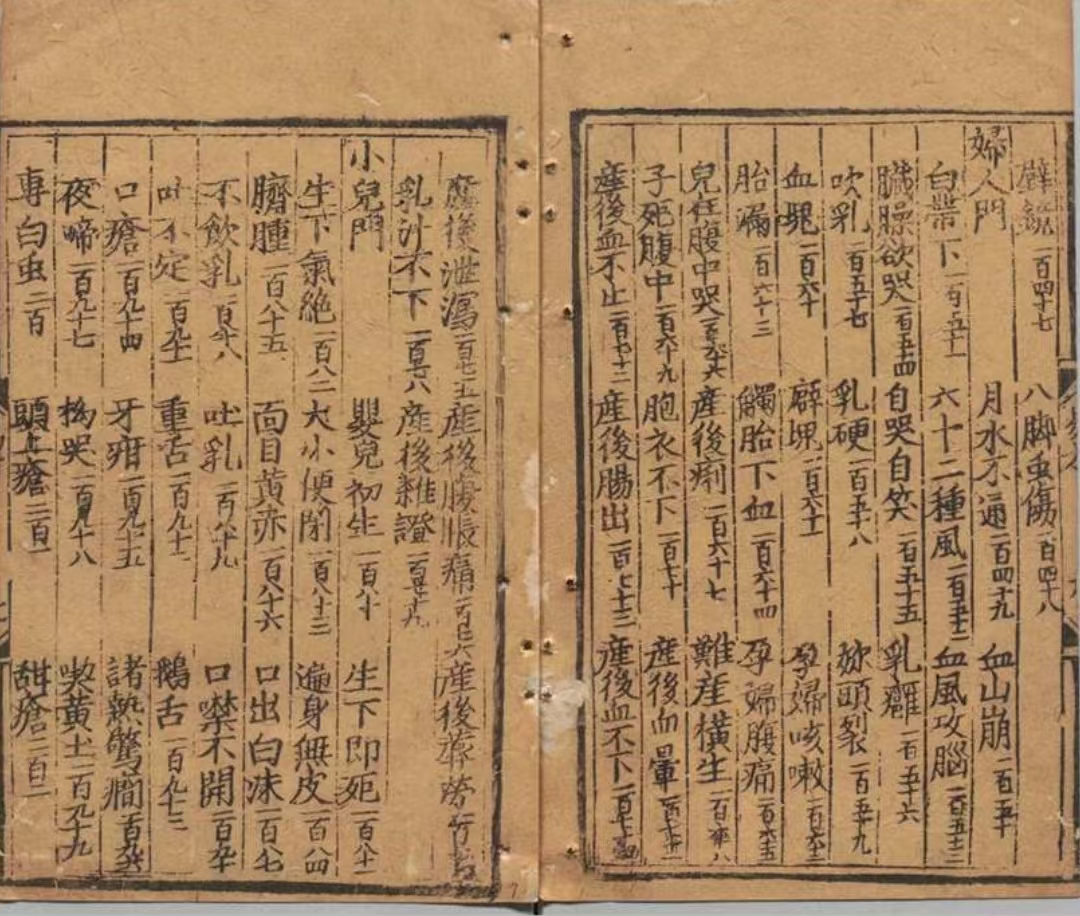 壁鏡 一百四十七 八脚虫傷 一百四十八
婦人門 月水不通 一百四十九 血山崩 一百五十
白帶下 一百五十一 六十二種風 一百五十二 血風攻腦 一百五十三
臟臊欲哭 一百五十四 自哭自笑 一百五十五 乳癰 一百五十六
吹乳 一百五十七 乳硬 一百五十八 妳頭裂 一百五十九
血𬏜 一百六十 癖塊 一百六十一 孕婦咳嗽 一百六十二
胎漏 一百六十三 觸胎下血 一百六十四 孕婦腹痛 一百六十五
兒在腹中哭 一百六十六 產後痢 一百六十七 難産橫生 一百六十八
子死腹中 一百六十九 胞衣不下 一百七十 産後血暈 一百七十一
産後血不止 一百七十二 産後腸出 一百七十三 産後血不下 一百七十四
産後泄瀉 一百七十五 産後腹脹痛 一百七十六 産後蓐勞 一百七十七
乳汁不下 一百七十八 産後雜證 一百七十九
小兒門 嬰兒初生 一百八十 生下即死 一百八十一
生下氣絶 一百八二 大小便閉 一百八十三 遍身無皮 一百八四
臍腫 一百八十五 面目黄赤 一百八十六 口出白沫 一百八七
不飲乳 一百八十八 吐乳 一百八十九 口噤不開 一百九十
吐不定 一百九十一 重舌 一百九十二 鵝舌 一百九十三
口瘡 一百九十四 牙疳 一百九十五 諸熱驚癎 一百九十六
夜啼 一百九十七 拗哭 一百九十八 喫黄土 一百九十九
專白虫 二百 頭上瘡 二百一 甜瘡 二百二